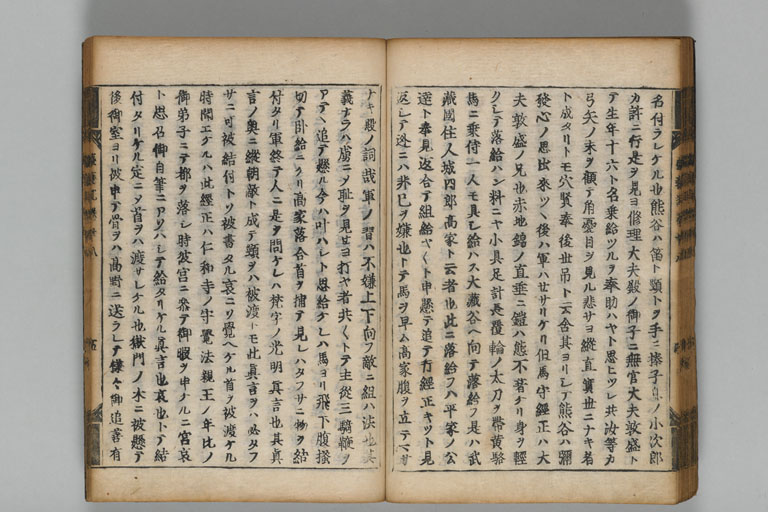 名付ラレケル也熊谷ハ笛ト頸トヲ手ニ捧子息ノ小次郎
カ許ニ行是ヲ見ヨ修理大夫殿ノ御子ニ無官大夫敦盛ト
テ生年十六ト名乗給ツルヲ奉助ハヤト思ヒツレ共汝等カ
弓矢ノ末ヲ顧テ角憂目ヲ見ル悲サヨ縦直實世ニナキ者
ト成タリトモ穴賢奉後世吊ト云含其ヨリシテ熊谷ハ弥
發心ノ思出来ツヽ後ハ軍ハセサリケリ但馬守經正ハ大
夫敦盛ノ兄也赤地錦ノ直垂ニ鎧ハ態不著ケリ身ヲ輕
クシテ落給ハン料ニヤ小具足計長覆輪ノ太刀ヲ帶黄駱
馬ニ乗侍一人モ具シ給ハス大藏谷ヘ向テ落給フ是ハ武
藏國住人城四郎高家ト云者也此ニ落給フハ平家ノ公
達ト奉見返合テ組給ヘヤト申懸テ追テ行經正キツト見
返シテ逃ニハ非已ヲ嫌也トテ馬ヲ早ム高家腹ヲ立テマサ
ナキ殿ノ詞哉軍ノ習ハ不嫌上下向フ敵ニ組ハ法也其
義ナラハ虜ニシ耻ヲ見セヨ打ヤ者共トテ主從三騎鞭ヲ
アテヽ追テ懸ル今ハ叶ハシト思給ケレハ馬ヨリ飛下腹搔
切テ臥給ニケリ高家落合首ヲ捕テ見レハタフサニ物ヲ結
付タリ軍終テ人ニ是ヲ問ケレハ梵字ノ光明真言也其真
言ノ奥ニ縦朝敵ト成テ頸ヲハ被渡トモ此真言ヲハ必タフ
サニ可被結付トソ被書タル哀ニソ覺ヘケル首ヲ被渡ケル
時聞エケルハ此經正ハ仁和寺ノ守覺法親王ノ年比ノ
御弟子ニテ都ヲ落シ時彼宮ニ参テ御暇ヲ申ケルニ宮哀
ト思召御自筆ニアソハシテ給タリケル真言也哀也トテ結
付タリケル定ニ首ヲハ渡サレケル也獄門ノ木ニ被懸テ
後御室ヨリ被申テ骨ヲハ高野ニ送ラレテ様々御追善有